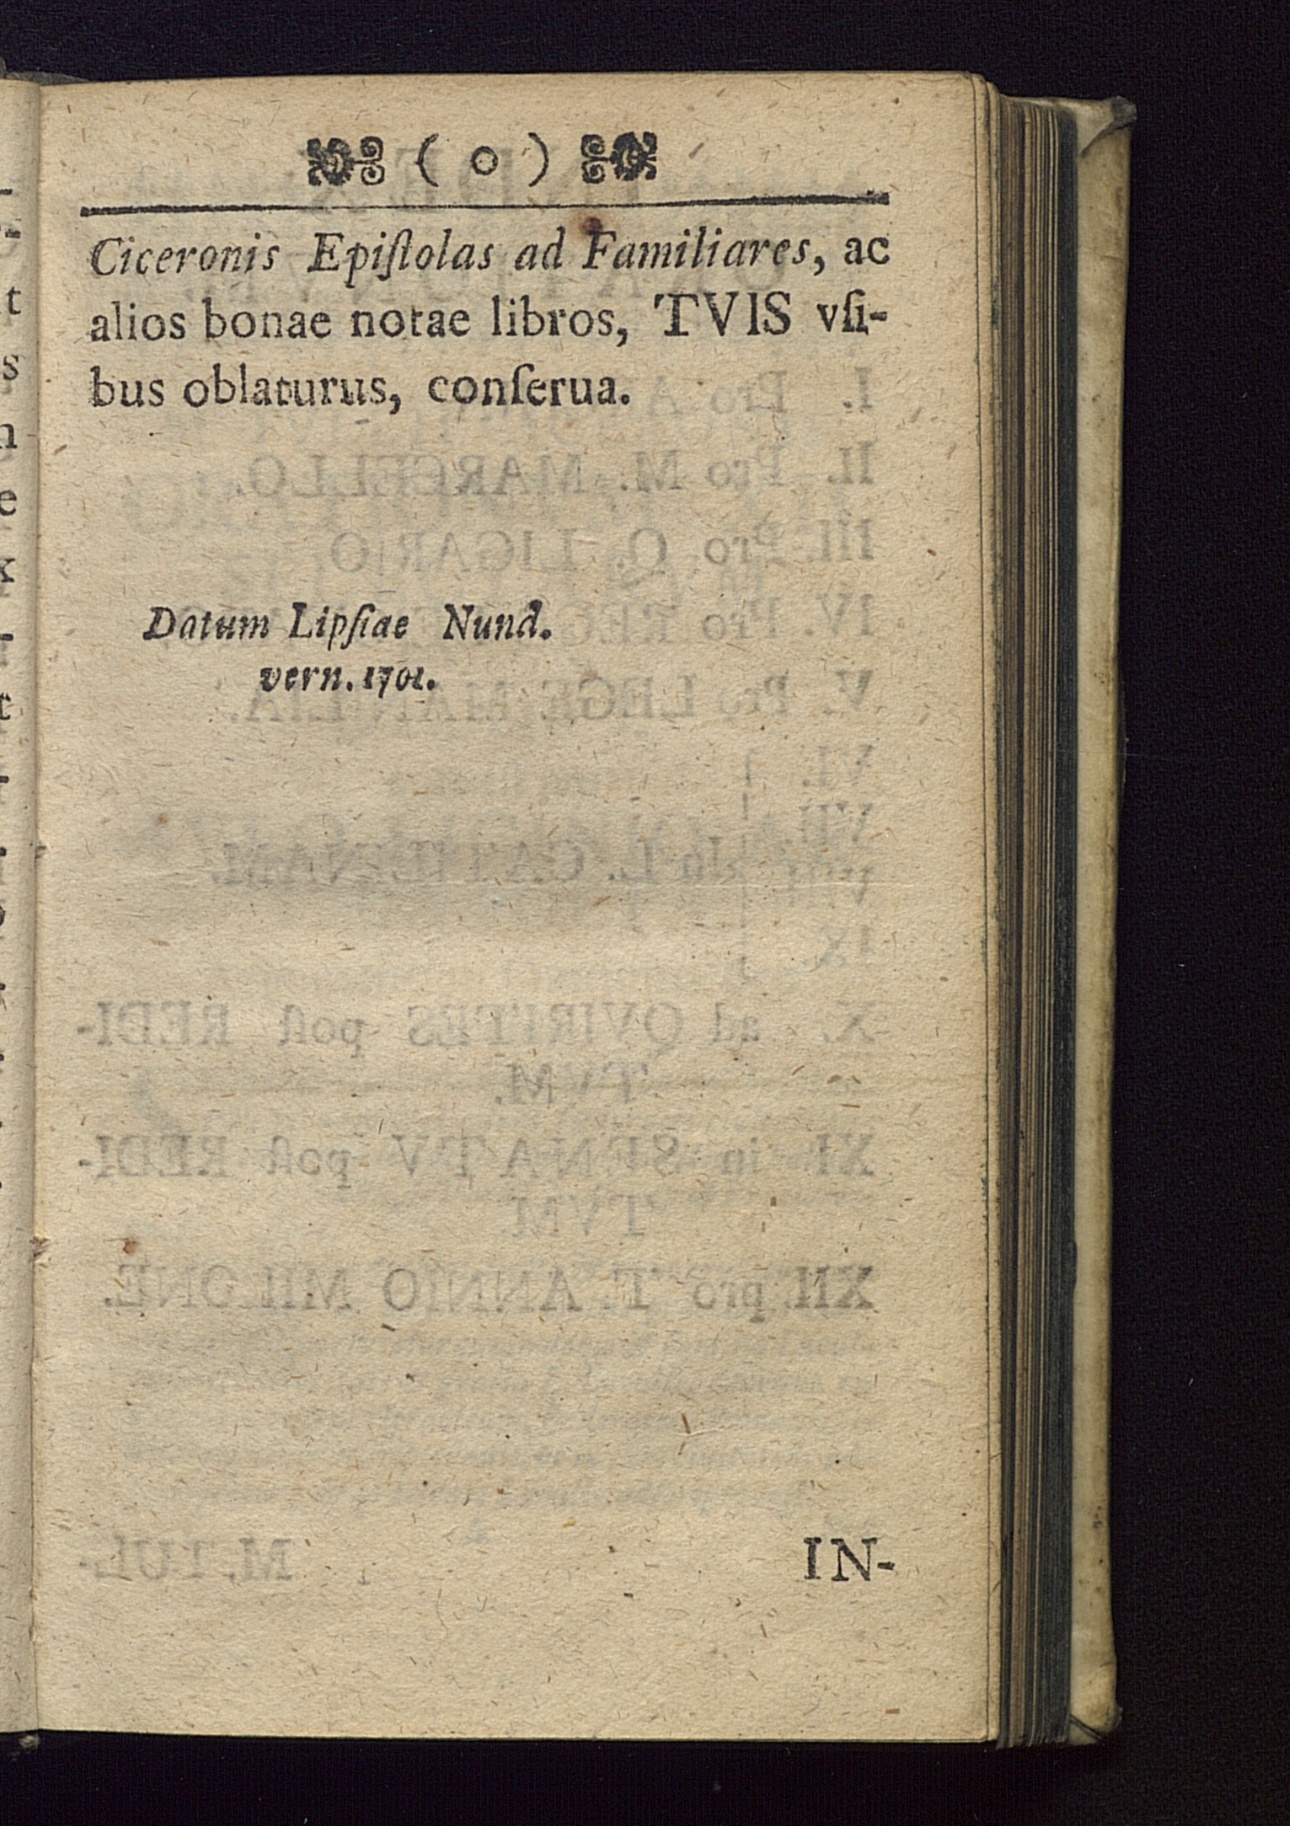 ( o )
Ciceronis Epiſtolas ad Familiares, ac
alios bonae notae libros, TVIS vſi-
bus oblaturus, conſerua.
Datum Lipſiae Nund.
vern. 1701.
IN-